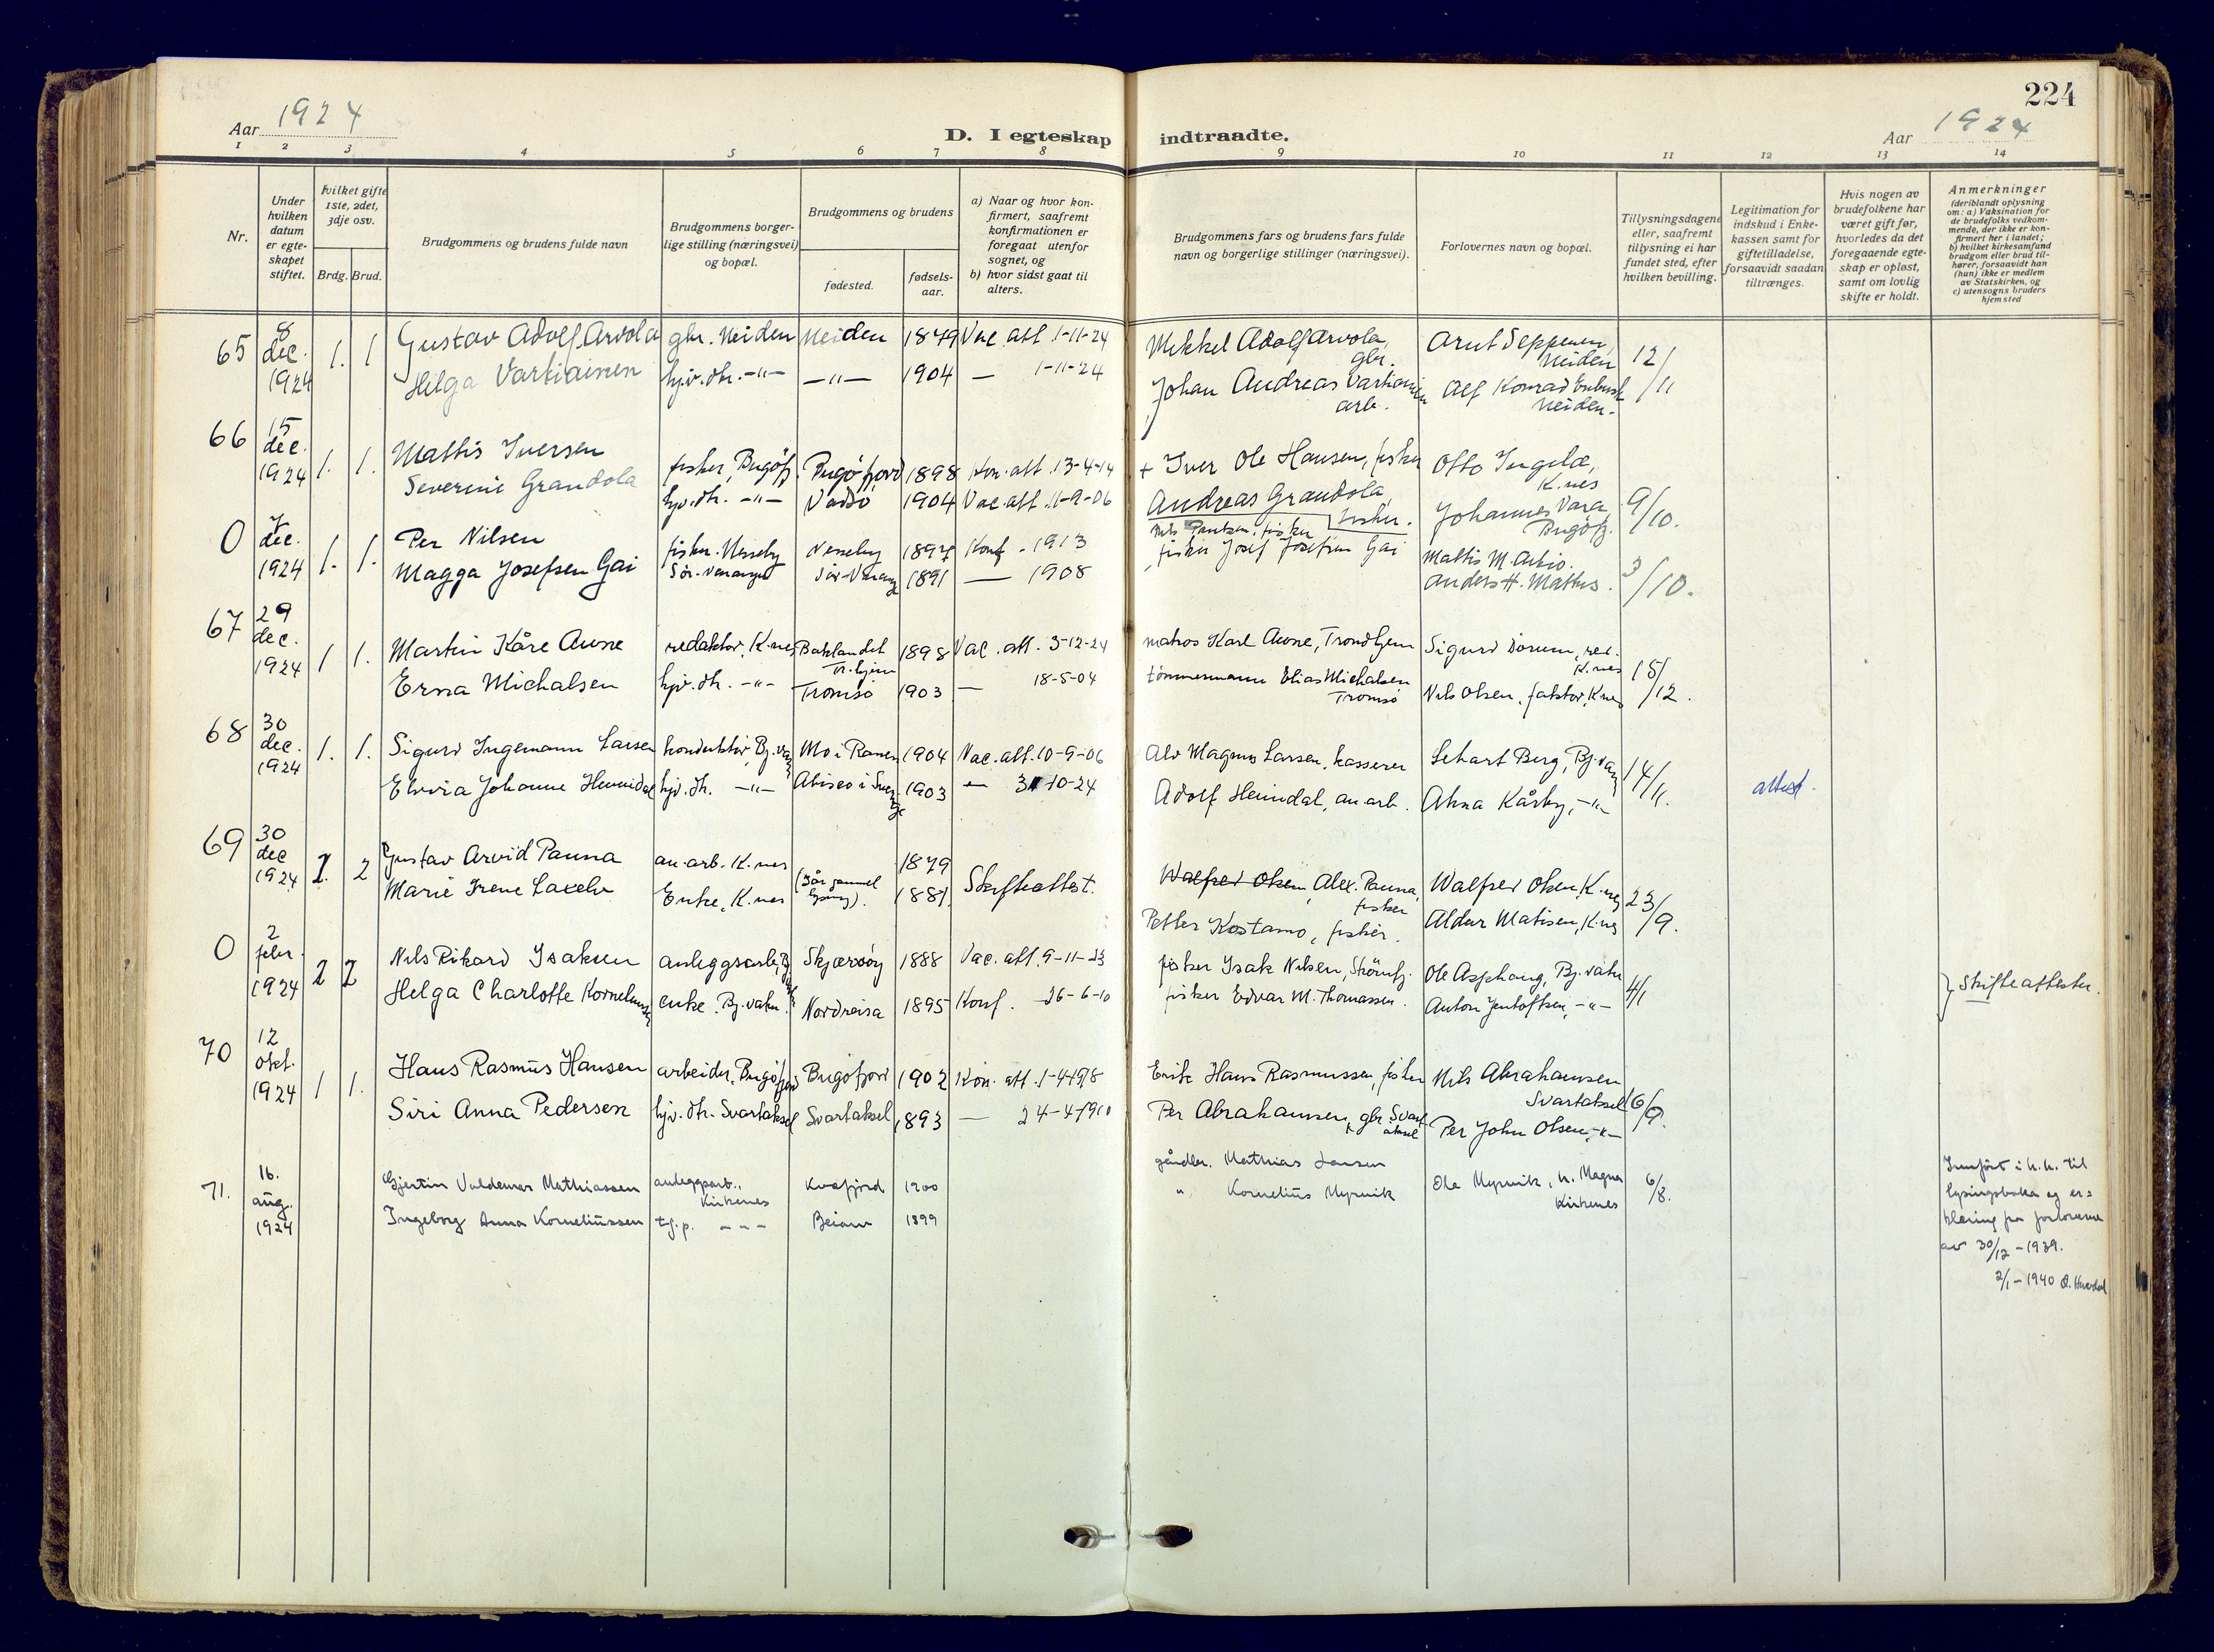 224
Aar 1924
D. I egteskap indtraadte.
Aar 1924
1 2 3 4 5 6 7 8 9 10 11 12 13 14
Nr.
Under hvilken datum er egteskapet stiftet.
Hvilket gifte 1ste, 2det, 3dje osv.
Brdg. Brud.
Brudgommens og brudens fulde navn
Brudgommens borgerlige stilling (næringsvei) og bopæl.
Brudgommens og brudens
fødested.
fødselsaar.
a) Naar og hvor konfirmert, saafremt konfirmationen er foregaat utenfor sognet, og
b) hvor sidst gaat til alters.
Brudgommens fars og brudens fars fulde navn og borgerlige stillinger (næringsvei).
Forlovernes navn og bopæl.
Tillysningsdagene eller, saafremt tillysning ei har fundet sted, efter hvilken bevilling.
Legitimation for indskud i Enkekassen samt for giftetilladelse, forsaavidt saadan tiltrænges.
Hvis nogen av brudefolkene har været gift før, hvorledes da det foregaaende egteskap er opløst, samt om lovlig skifte er holdt.
Anmerkninger (deriblandt oplysning om: a) Vaksination for de brudefolks vedkommende, der ikke er konfirmert her i landet; b) hvilket kirkesamfund brudgom eller brud tilhører, forsaavidt han (hun) ikke er medlem av Statskirken, og c) utensogns bruders hjemsted
65 8 dec. 1924 1. 1 Gustav Adolf Arvola gbr. Neiden Neiden 1879 Vac. att. 1-11-24 Mikkel Adolf Arvola, gbr. Arut Seppenen, Neiden 12/11
Helga Vartiainen hjv. dtr. -"- -"- 1904 — 1-11-24 Johan Andreas Vartiainen arb. Alf Konrad Neiden.
66 15 dec. 1924 1. 1. Mattis Iversen fisker, Bugöfj. Bugöfjord 1898 Kon. att. 13-4-14 + Iver Ole Hansen, fisker Otto Ingilæ, K.nes 9/10.
Severine Grandola hjv. dtr. -"- Vadsö 1904 Vac. att. 11-9-06 Andreas Grandola, fisker. Johannes Vara, Bugöfj.
0 7 dec. 1924 1. 1. Per Nilsen fisker. Nesseby Nesseby 1897 Konf. - 1913 Nils Paulsen, fisker Mattis M. Aikio. 3/10.
Magga Josefsen Gai Sör-Varanger Sör-Varang. 1891 — 1908 fisker Josef Josefsen Gai Anders H. Mathis.
67 29 dec. 1924 1 1. Martin Kåre Aune redaktör, K.nes Baklandet Tr.hjem 1898 Vac. att. 3-12-24 matros Karl Aune, Trondhjem Sigurd Dorum, red. K.nes 15/12.
Erna Michalsen hjv. dtr. -"- Tromsö 1903 — 18-5-04 tömmermann Elias Michalsen Tromsö Nils Olsen, faktor, K.nes
68 30 dec. 1924 1. 1. Sigurd Ingemann Larsen konduktör, Bj.vatn Mo i Ranen 1904 Vac. att. 10-9-06 Alv Magnus Larsen, kasserer Sehart Berg, Bj.vatn 14/11. attest.
Elvira Johanne Hemmdal hjv. dtr. -"- Abisco i Sverige 1903 — 31-10-24 Adolf Heimdal, an.arb. Anna Kårby, -"-
69 30 dec 1924 1. 2 Gustav Arvid Panna an.arb. K.nes 1879 Skifteattest. Walfred Olsen, Alex. Panna, fisker Walfred Olsen, K.nes 23/9.
Marie Irene Laxelv Enke, K.nes 1881 Petter Kostamo, fisker. Aldar Matisen, K.nes
0 2 febr. 1924 2 2 Nils Rikard Isaksen anleggsarb, Bj. Skjærvöy 1888 Vac. att. 9-11-23 fisker Isak Nilsen, Strömfj. Ole Asphaug, Bj.vatn 4/1 } Skifteattester.
Helga Charlotte Korneliussen enke. Bj.vatn. Nordreisa 1895 Konf. 26-6-10 fisker Edvar M. Thomassen. Anton Jentoftsen, -"-
70 12 okt. 1924 1 1. Hans Rasmus Hansen arbeider, Bugöfjord Bugöfjord 1902 Kon. att. 1-4-1918 Erik Hans Rasmussen, fisker Nils Abrahamsen Svartaksel 16/9.
Siri Anna Pedersen hjv. dtr. Svartaksel Svartaksel 1893 — 24-4-1910 Per Abrahamsen, gbr. Svartaksel Per John Olsen, -"-
71. 16. aug. 1924 Gjertin Valdemar Mathiassen anleggsarb., Kirkenes Kvæfjord 1900 gårdbr. Mathias Jansen Ole Myrvik, h. Magna Kirkenes 6/8.
Ingeborg Anna Korneliussen tj.p. -"- Beiarn 1899 " Kornelius Myrvik
Innført i h.h. til lysingsboka og erklæring fra forloverne av 30/12 - 1939.
2/1 - 1940